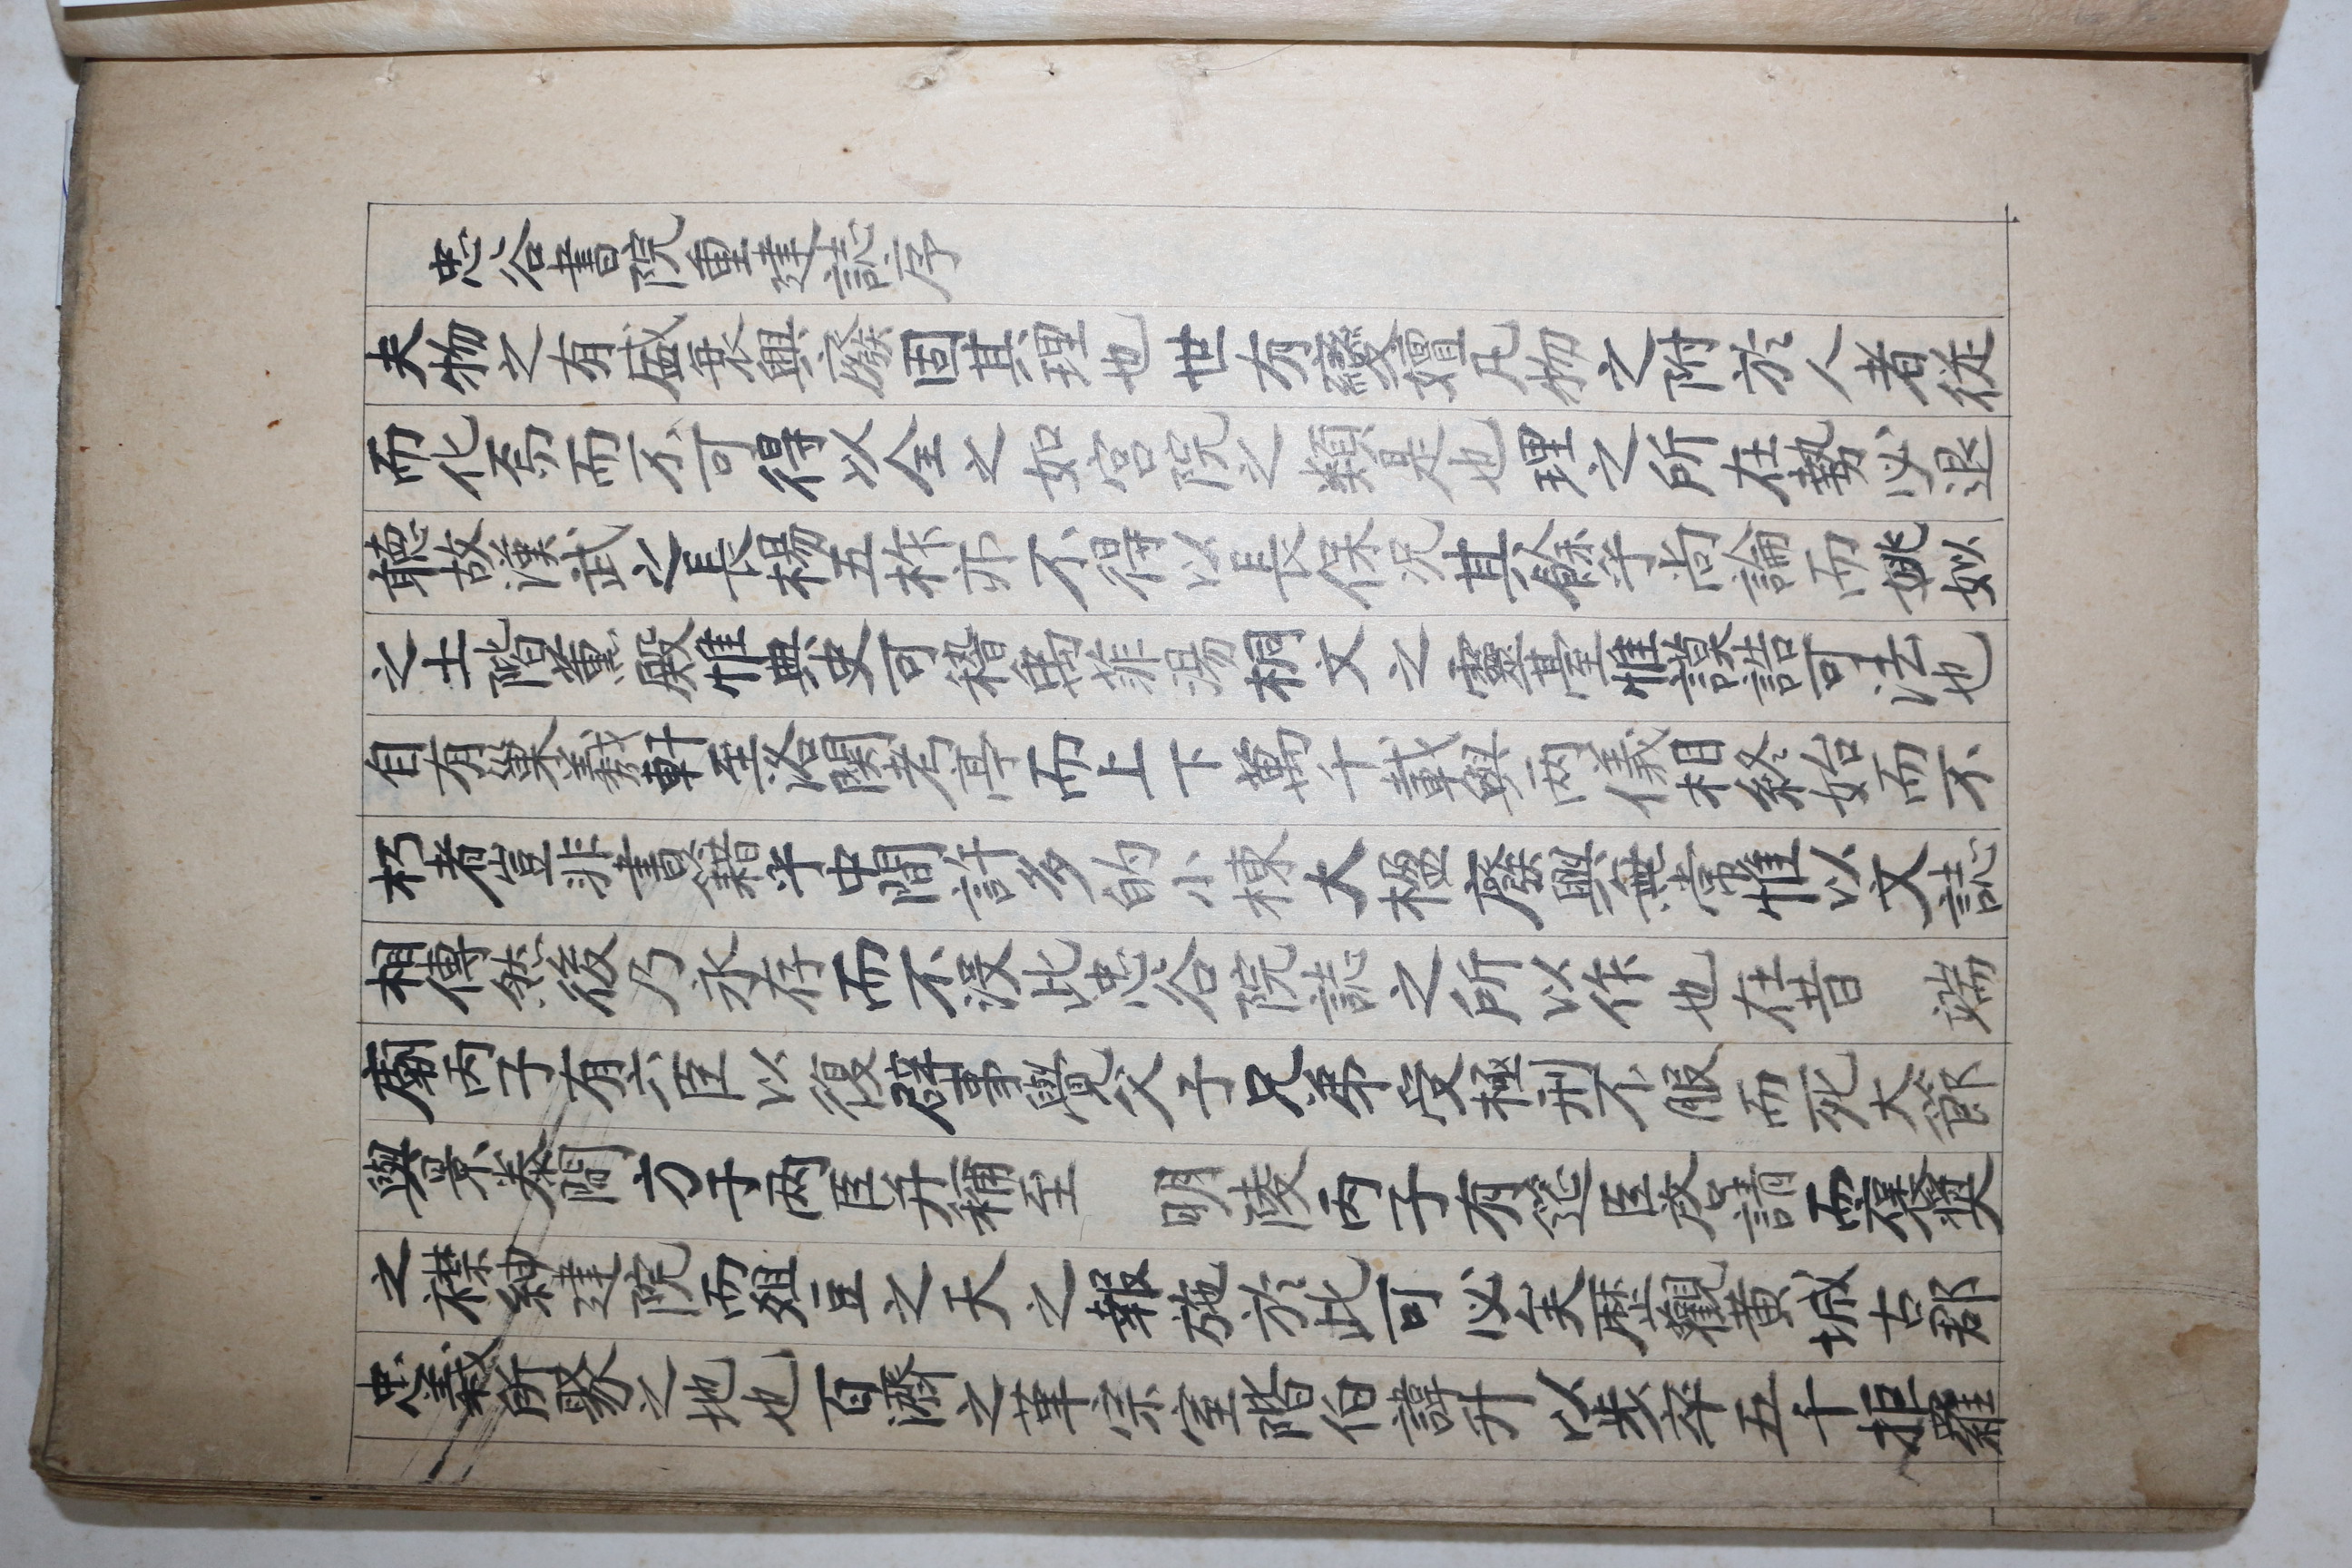 忠谷書院重建誌序
夫物之有盛衰興廢固其理也世有變嬗凡物之附於人者従
而化焉而不可得以全之如宮院之類是也理之所在勢必退
聽故漢武之長楊五柞亦不得以長保况其餘乎尚論而姚姒
之土階薰殿惟典史可稽禹菲湯桐文之靈臺惟謨誥可法也
自有巢羲軒至洛関考亭而上下萬千載與两儀相終始而不
朽者豈非書籍乎中間許多的小棟大楹廢興無常惟以文誌
相傳然後乃永存而不没此忠谷院誌之所以作也在昔　端
廟丙子有六臣以復辟事覺父子兄弟受極刑不服而死大節
與景泰間方于两臣并稱至　明陵丙子有筵臣啓請而褒奬
之襟紳建院而俎豆之天之報施於此可必矣歷觀黄城古郡
忠義所聚之地也百濟之革宗室階伯諱升以步卒五千拒羅